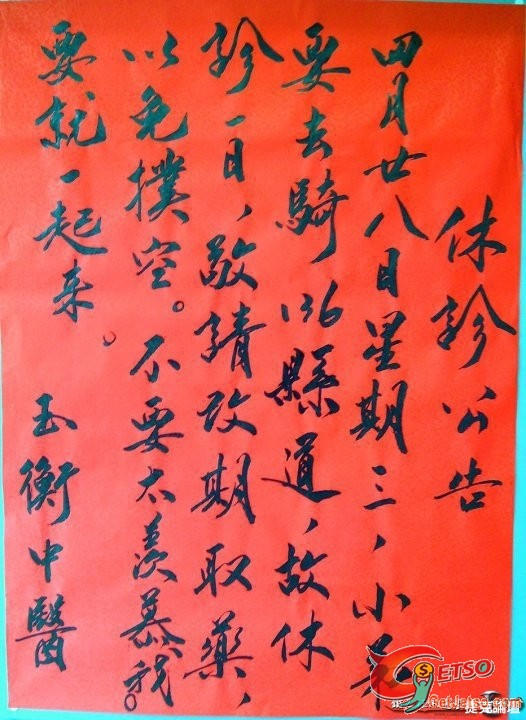 休診公告
四月廿八日星期三，小弟
要去騎136縣道，故休
診一日，敬請改期取藥，
以免撲空。不要太羨慕我。
要就一起来。
玉衡中醫
GETSO
捷克論壇